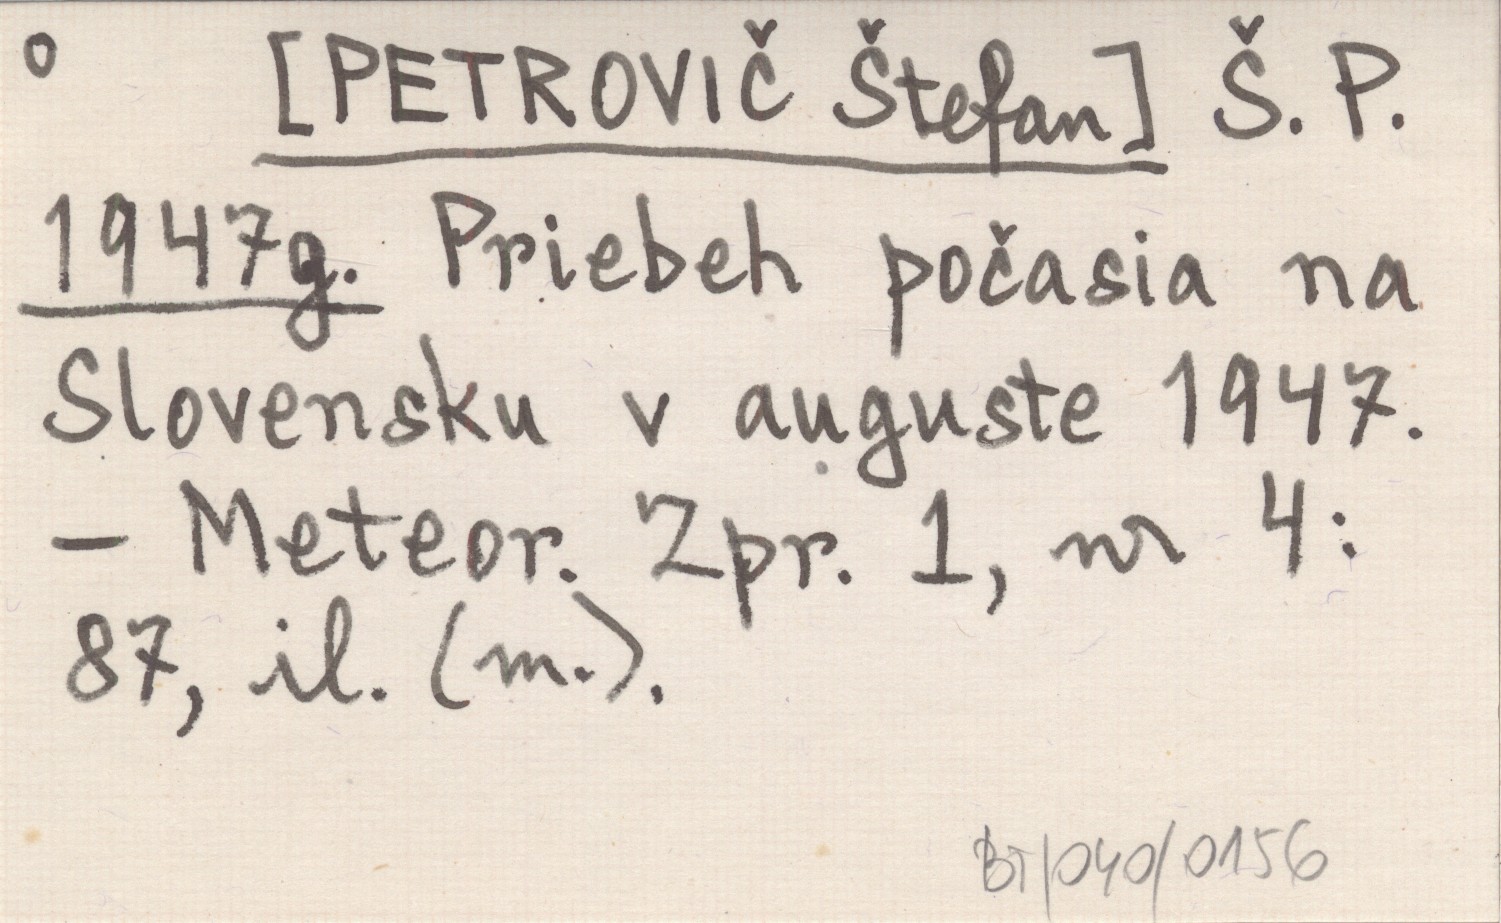 o [PETROVIČ Štefan] Š. P.
1947g. Priebeh počasia na
Slovensku v auguste 1947.
– Meteor. Zpr. 1, nr 4:
87, il. (m.).
BT/040/0156